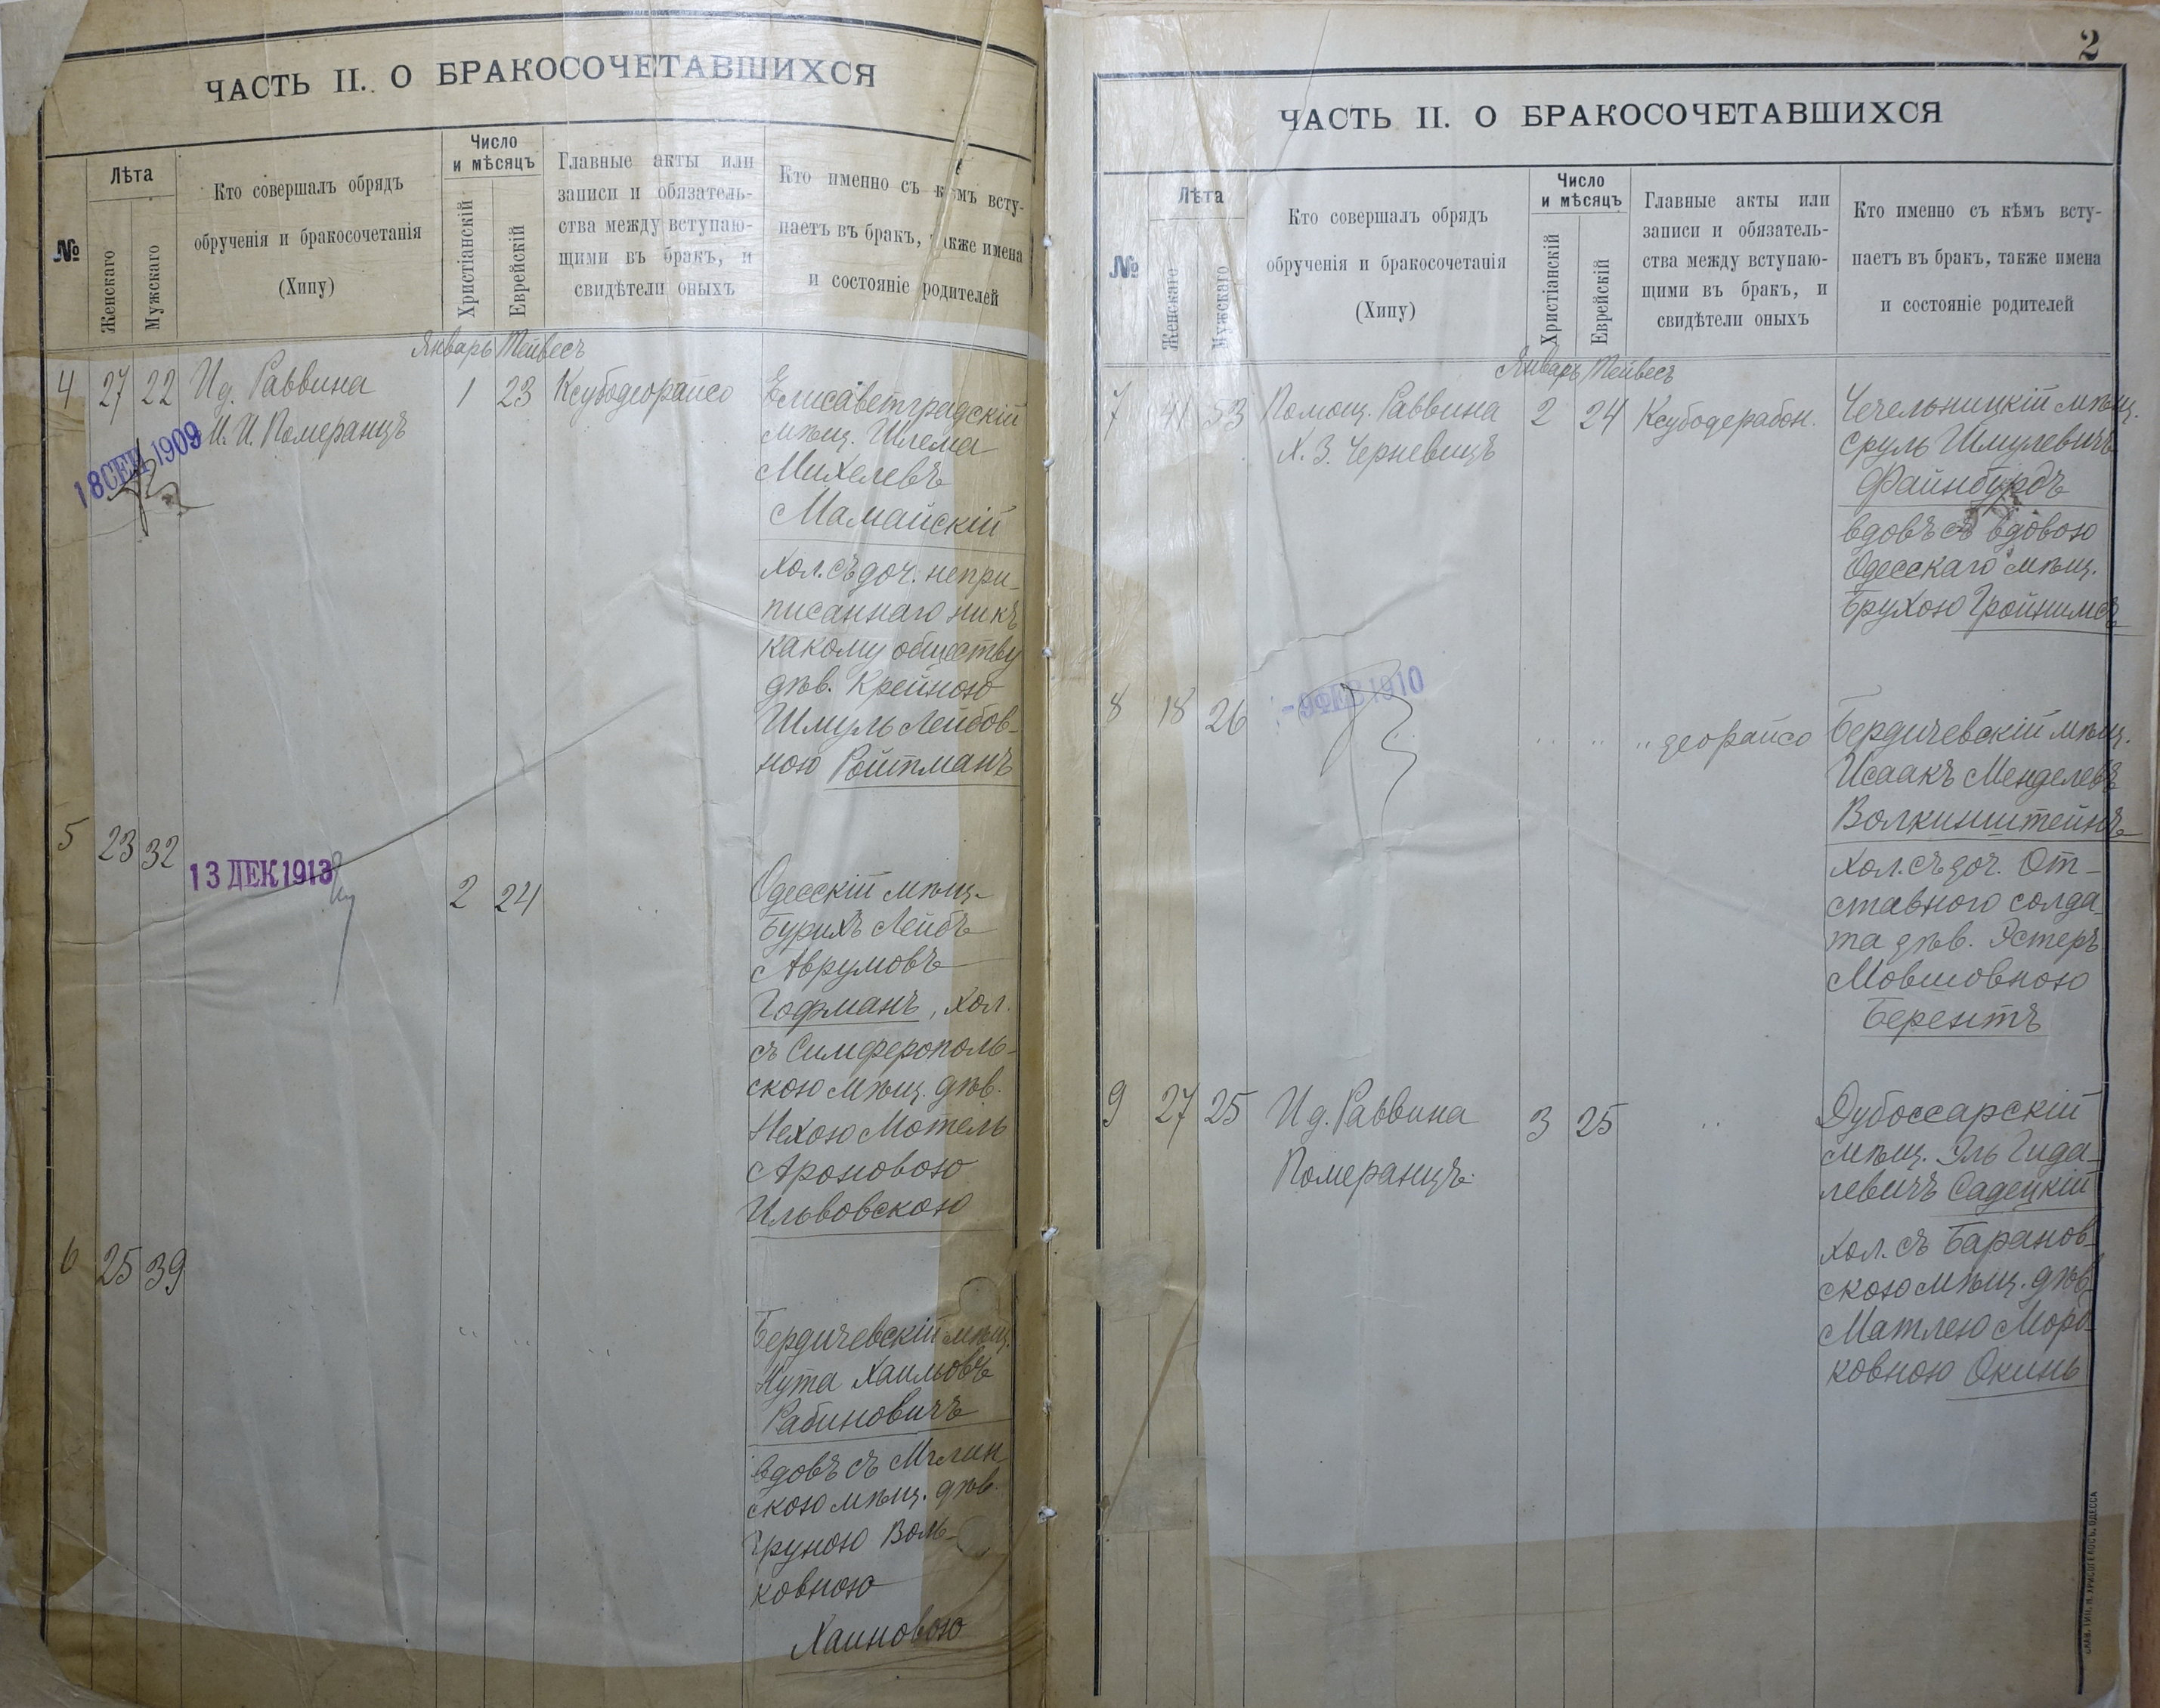 ЧАСТЬ II. О БРАКОСОЧЕТАВШИХСЯ
№
Лѣта
Женскаго
Мужскаго
Кто совершалъ обрядъ
обрученія и бракосочетанія
(Хипу)
Число
и мѣсяцъ
Христіанскій
Еврейскій
Главные акты или
записи и обязатель-
ства между вступаю-
щими въ бракъ, и
свидѣтели оныхъ
Кто именно съ кѣмъ всту-
паетъ въ бракъ, также имена
и состояніе родителей
Январь Тейвесъ
4 27 22 Ид. Раввина 1 23 Ксубодеорайсо
М. И. Померанцъ
18 СЕН 1909
Елисаветградскій
мѣщ. Шлема
Михелевъ
Мамайскій
хол. съ доч. непри-
писаннаго ник
какому обществу
дѣв. Крейною
Шмуль Лейбов-
ною Ройтманъ
5 23 32
13 ДЕК 1913
2 24 "
Одесскій мѣщ.
Бурихъ Лейбъ
Аврумовъ
Гофманъ, хол.
съ Симферополь-
скою мѣщ. дѣв.
Нехою Мотель
Ароновою
Ильвовскою
6 25 39
" " "
Бердичевскій мѣщ.
Нута Хаимовъ
Рабиновичъ
вдовъ съ Мглин
скою мѣщ. дѣв.
Груною Воль-
ковною
Хаиновою
2
ЧАСТЬ II. О БРАКОСОЧЕТАВШИХСЯ
№
Лѣта
Женскаго
Мужскаго
Кто совершалъ обрядъ
обрученія и бракосочетанія
(Хипу)
Число
и мѣсяцъ
Христіанскій
Еврейскій
Главные акты или
записи и обязатель-
ства между вступаю-
щими въ бракъ, и
свидѣтели оныхъ
Кто именно съ кѣмъ всту-
паетъ въ бракъ, также имена
и состояніе родителей
Январь Тейвесъ
7 41 53 Помощ. Раввина 2 24 Ксубодерабон.
Х. З. Черневицъ
Чечельницкій мѣщ.
Сруль Шмулевичъ
Файнбурдъ
вдовъ съ вдовою
Одесскаго мѣщ.
Брухою Гройнимъ
8 18 26
-9 ФЕВ 1910
" " " деорайсо
Бердичевскій мѣщ.
Исаакъ Менделевъ
Волкинштейнъ
хол. съ доч. От-
ставного солда-
та дѣв. Эстеръ
Мовшовною
Берентъ
9 27 25 Ид. Раввина 3 25 "
Померанцъ.
Дубоссарскій
мѣщ. Эль Гида-
левичъ Садецкій
хол. съ Баранов-
скою мѣщ. дѣв.
Матлею Морд-
ковною Окинь